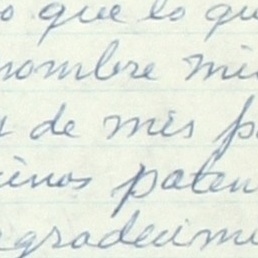 o que lo que
nombre mi
de mis p
paten
gradecim